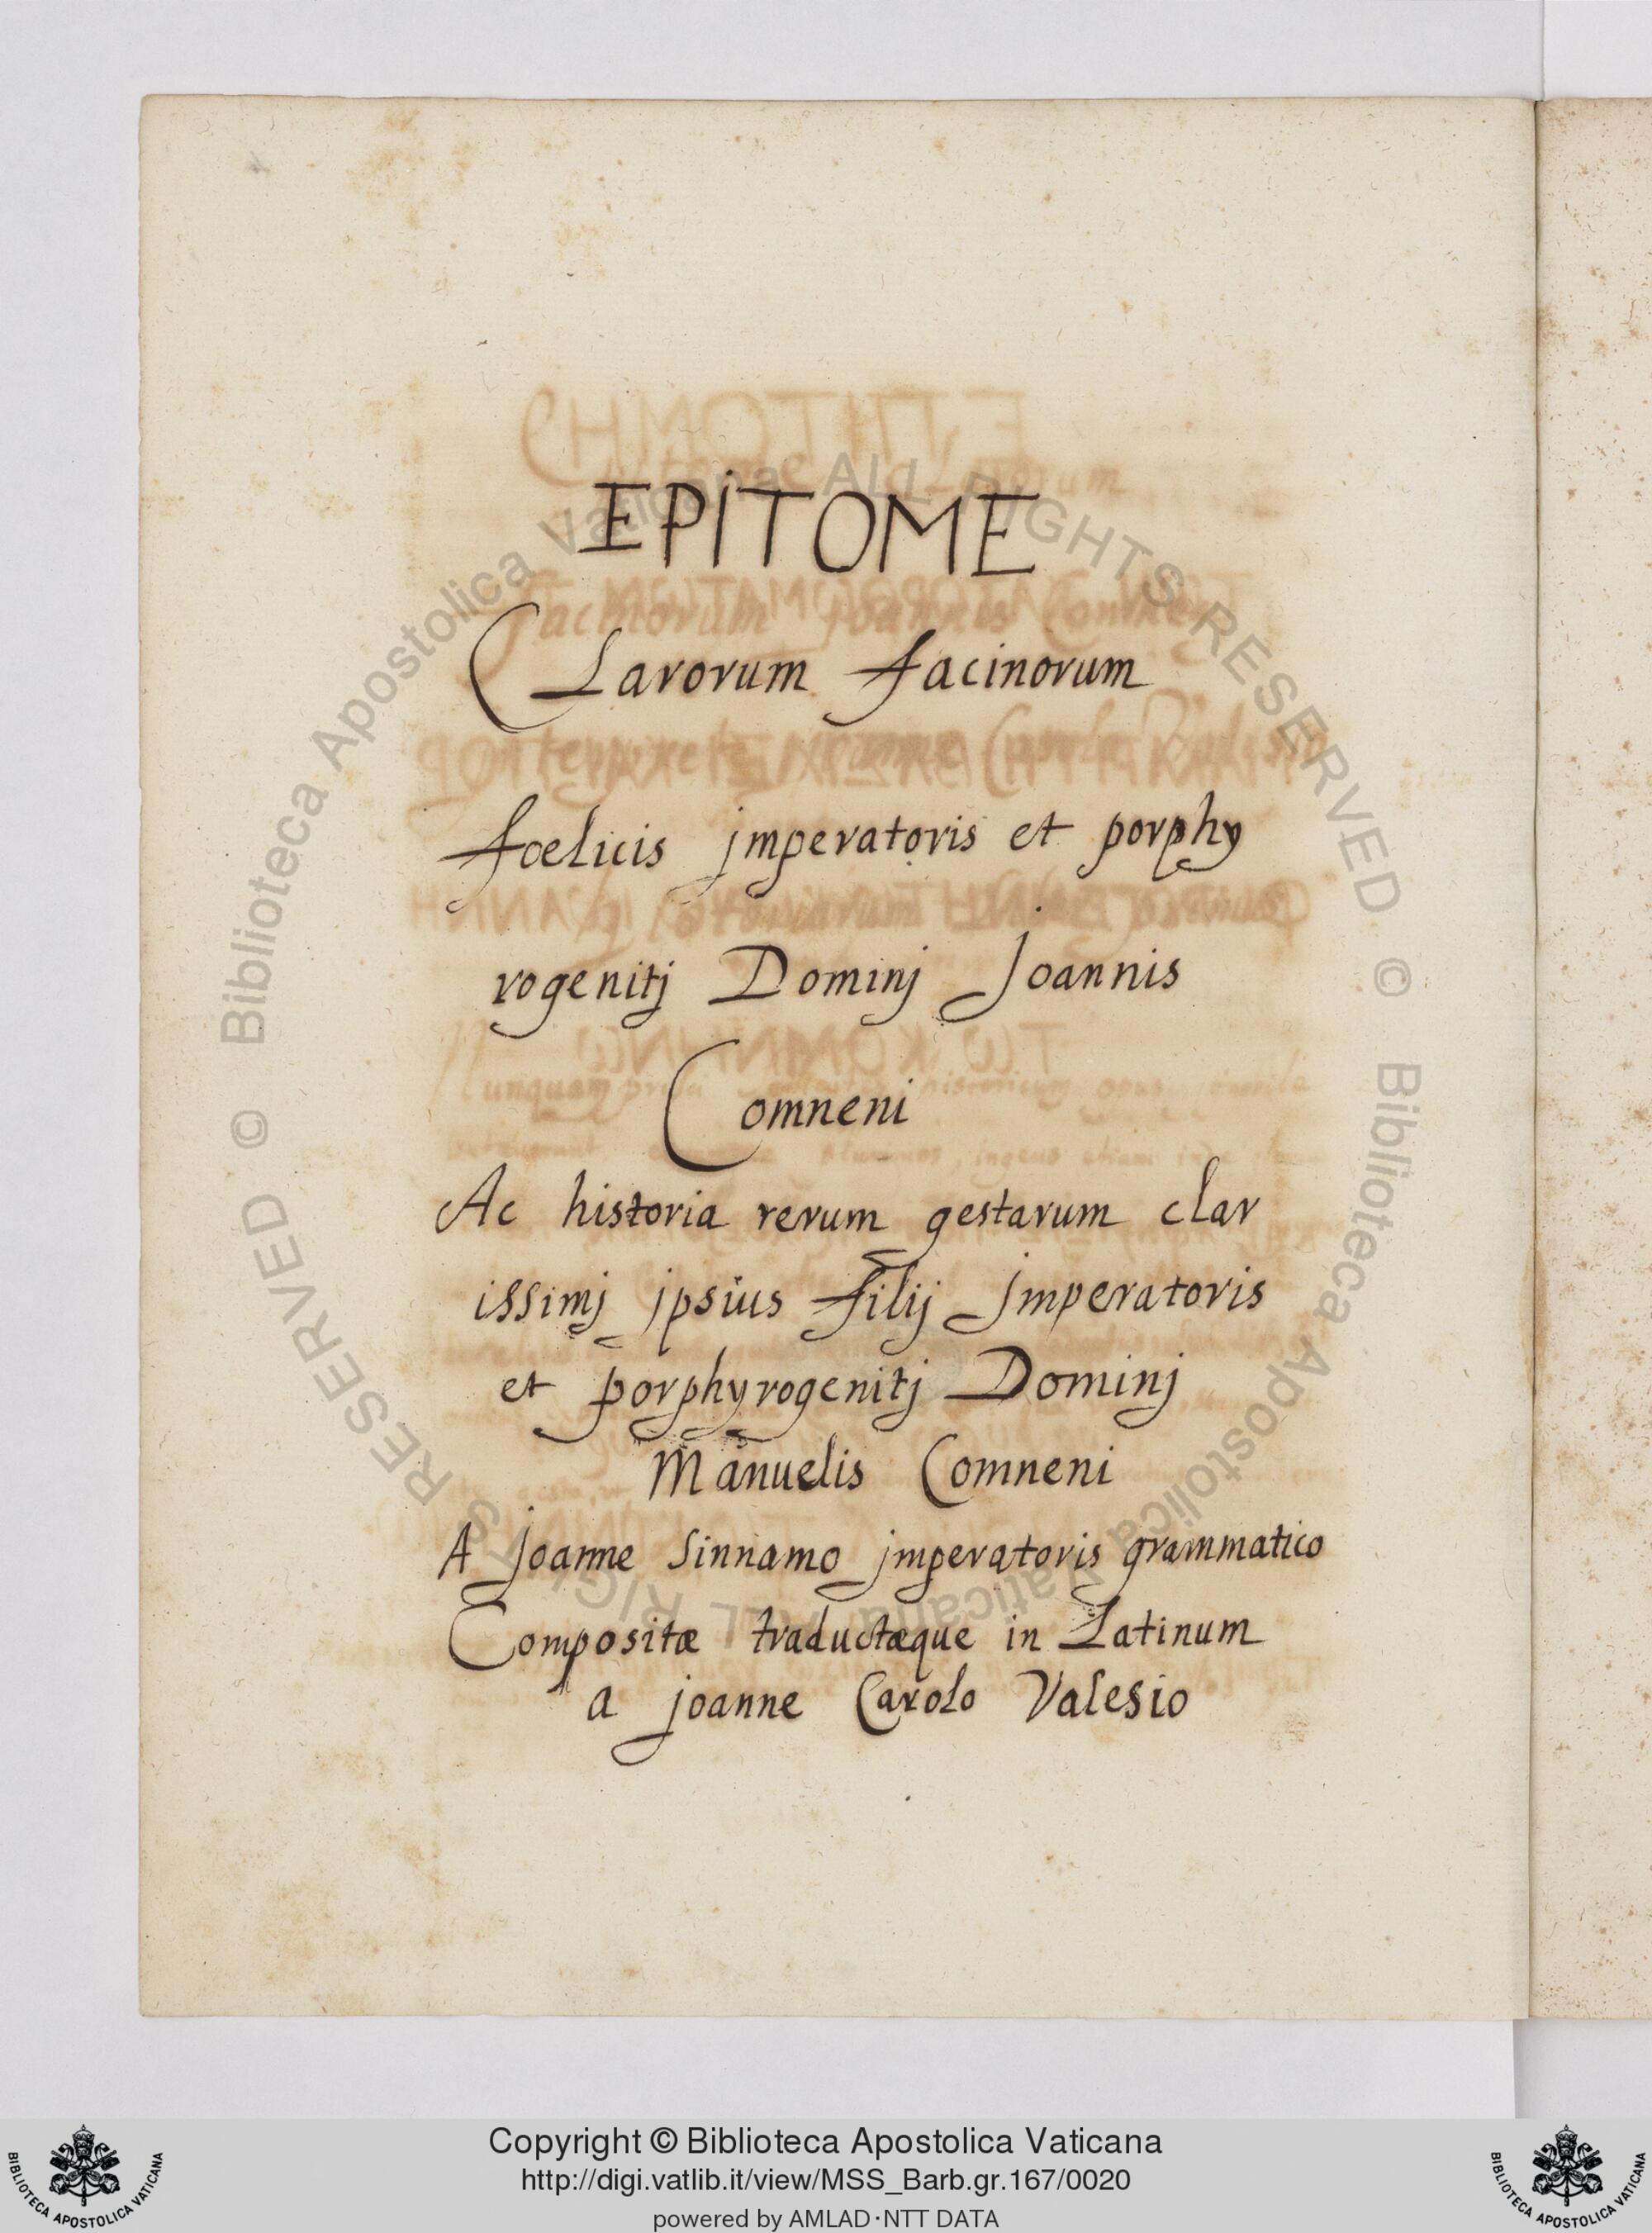 EPITOME
CLarorum facinorum
foelicis jmperatoris et porphy
rogenitj Dominj Joannis
Comneni
Ac historia rerum gestarum clar
issimj jpsius filij Jmperatoris
et porphyrogenitj Dominj
Manuelis Comneni
A Joanne Sinnamo jmperatoris grammatico
Compositæ traductæque in Latinum
a joanne Carolo Valesio
© Biblioteca Apostolica Vaticana ALL RIGHTS RESERVED
© Biblioteca Apostolica Vaticana ALL RIGHTS RESERVED
Copyright © Biblioteca Apostolica Vaticana
http://digi.vatlib.it/view/MSS_Barb.gr.167/0020
powered by AMLAD·NTT DATA
BIBLIOTECA APOSTOLICA VATICANA
BIBLIOTECA APOSTOLICA VATICANA